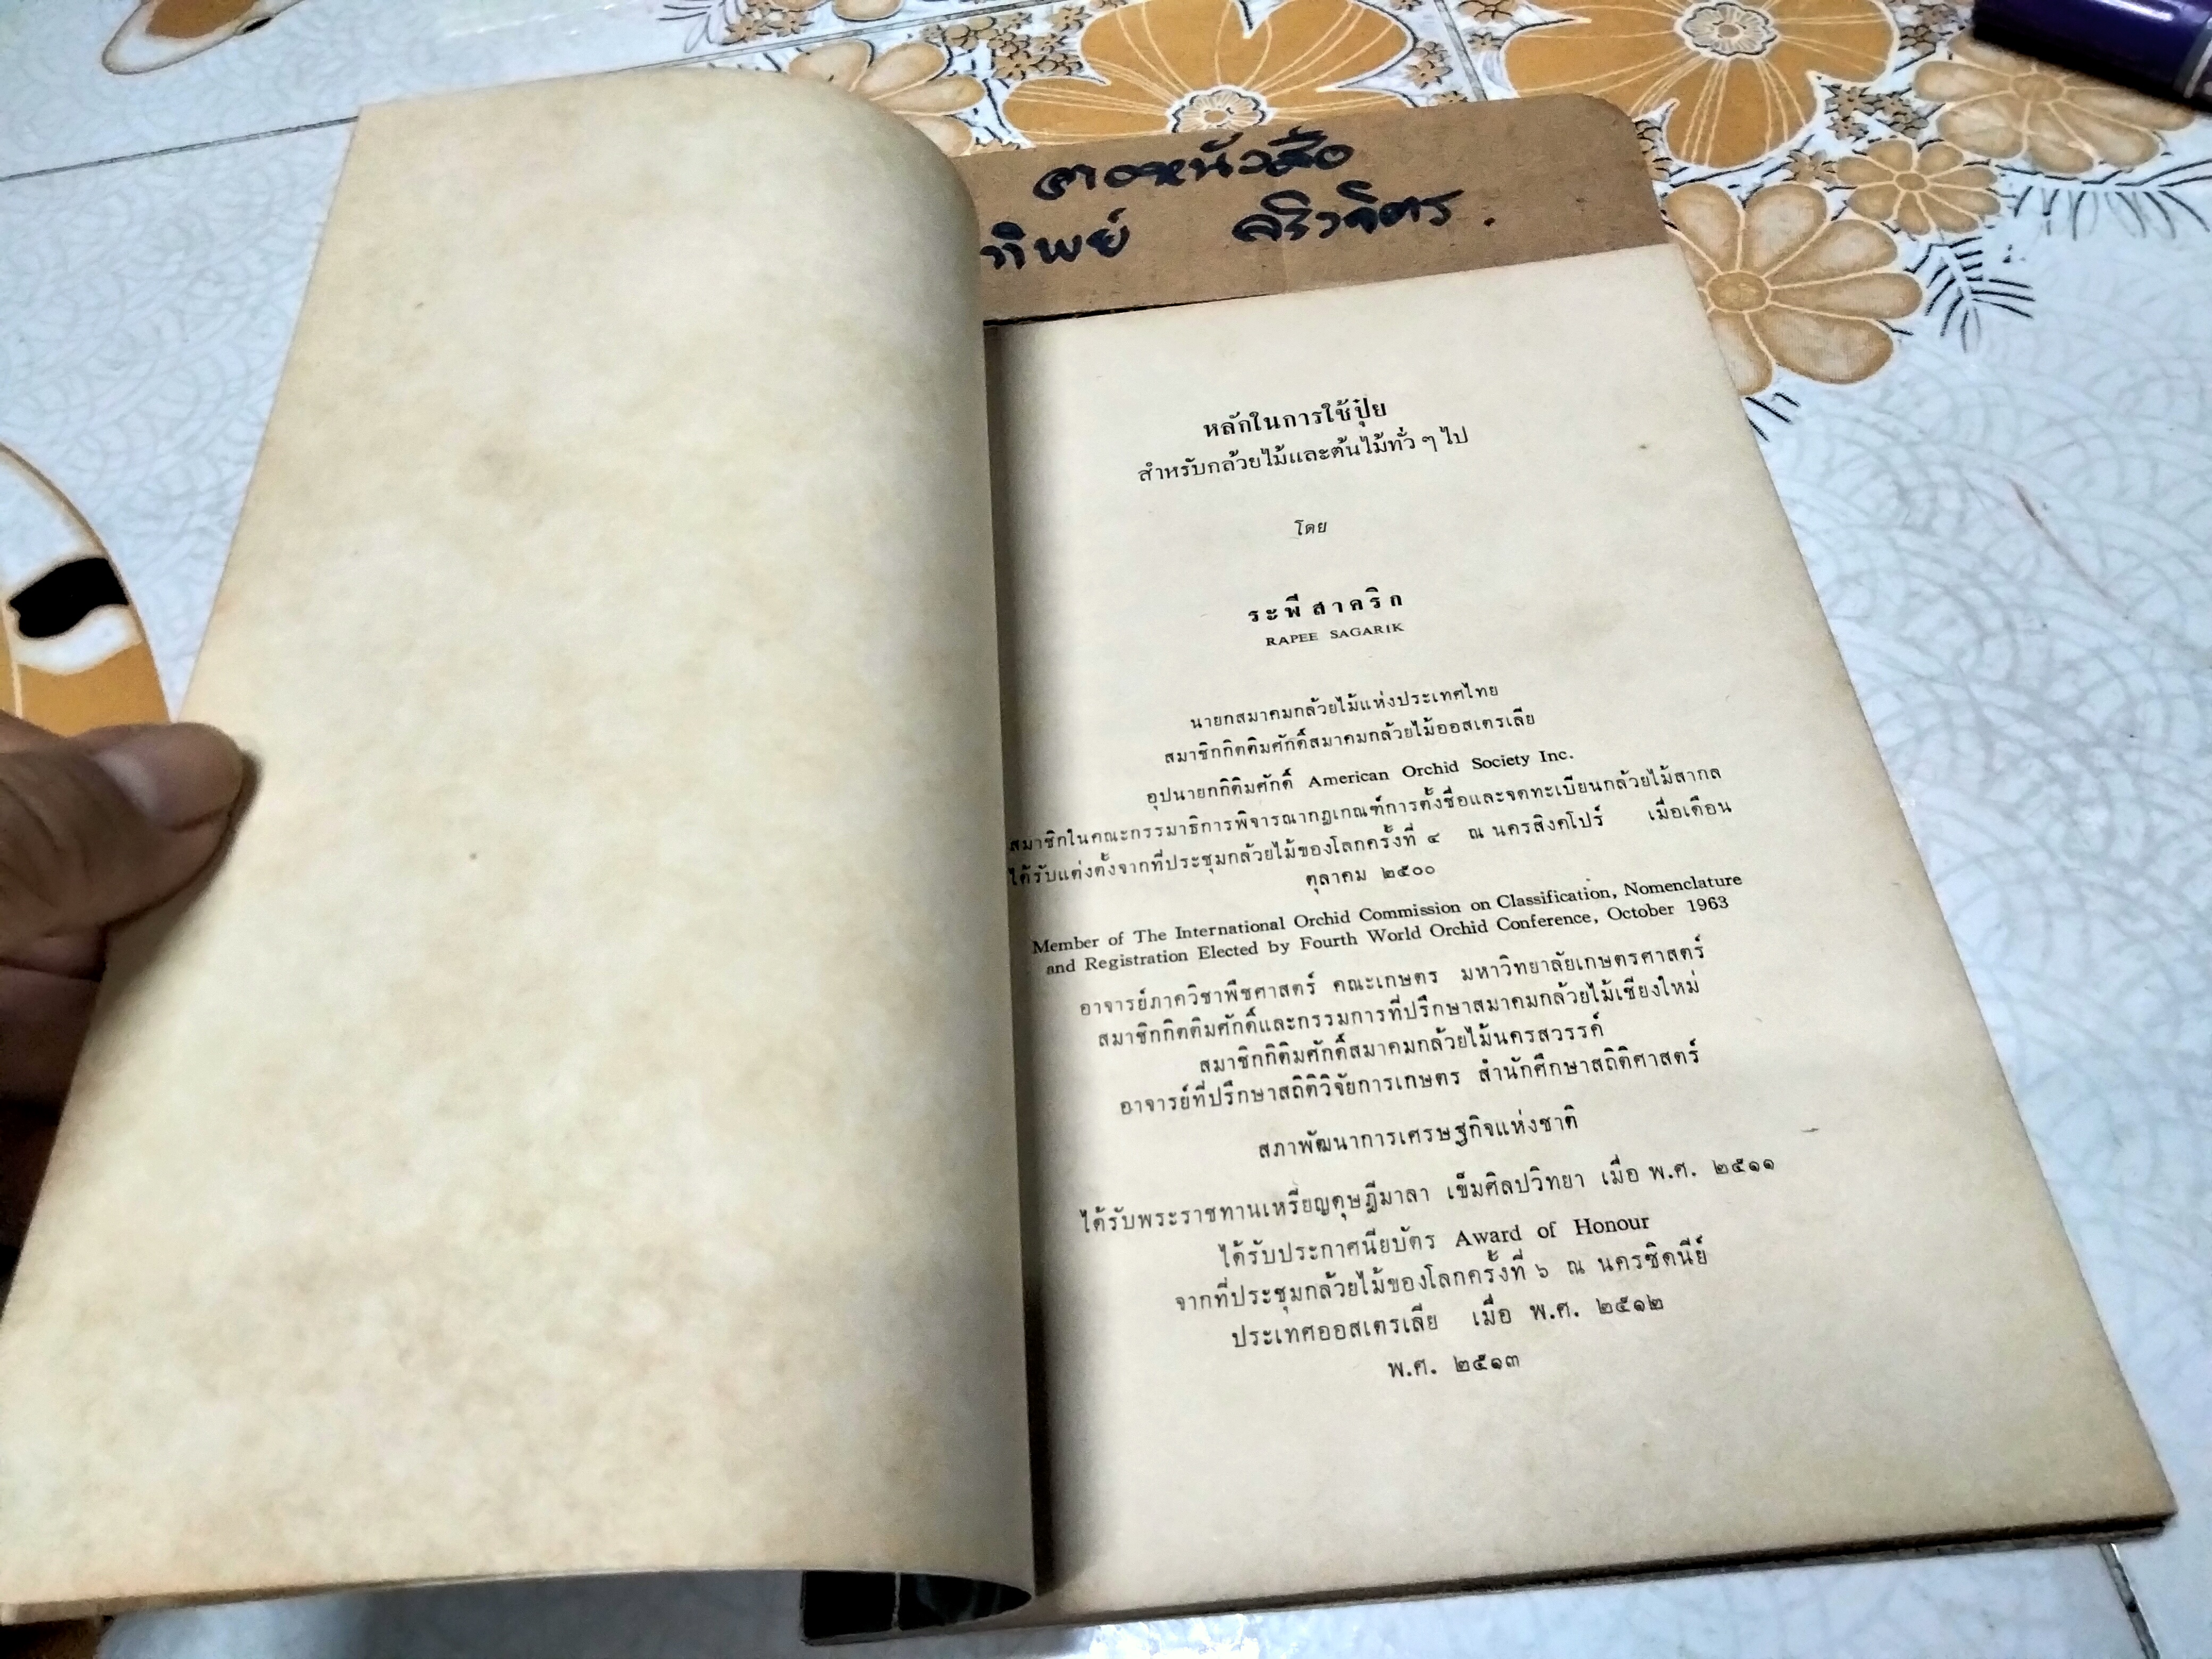 ทิพย์
หลักในการใช้ปุ๋ย
สำหรับกล้วยไม้และต้นไม้ทั่ว ๆ ไป
โดย
ระพี สาคริก
RAPEE SAGARIK
นายกสมาคมกล้วยไม้แห่งประเทศไทย
สมาชิกกิตติมศักดิ์สมาคมกล้วยไม้ออสเตรเลีย
อุปนายกกิติมศักดิ์ American Orchid Society Inc.
สมาชิกในคณะกรรมาธิการพิจารณากฎเกณฑ์การตั้งชื่อและจดทะเบียนกล้วยไม้สากล
ได้รับแต่งตั้งจากที่ประชุมกล้วยไม้ของโลกครั้งที่ ๔ ณ นครสิงคโปร์ เมื่อเดือน
ตุลาคม ๒๕๐๐
Member of The International Orchid Commission on Classification, Nomenclature
and Registration Elected by Fourth World Orchid Conference, October 1963
อาจารย์ภาควิชาพืชศาสตร์ คณะเกษตร มหาวิทยาลัยเกษตรศาสตร์
สมาชิกกิตติมศักดิ์และกรรมการที่ปรึกษาสมาคมกล้วยไม้เชียงใหม่
สมาชิกกิติมศักดิ์สมาคมกล้วยไม้นครสวรรค์
อาจารย์ที่ปรึกษาสถิติวิจัยการเกษตร สำนักศึกษาสถิติศาสตร์
สภาพัฒนาการเศรษฐกิจแห่งชาติ
ได้รับพระราชทานเหรียญดุษฎีมาลา เข็มศิลปวิทยา เมื่อ พ.ศ. ๒๕๑๑
ได้รับประกาศนียบัตร Award of Honour
จากที่ประชุมกล้วยไม้ของโลกครั้งที่ ๖ ณ นครซิดนีย์
ประเทศออสเตรเลีย เมื่อ พ.ศ. ๒๕๑๒
พ.ศ. ๒๕๑๓